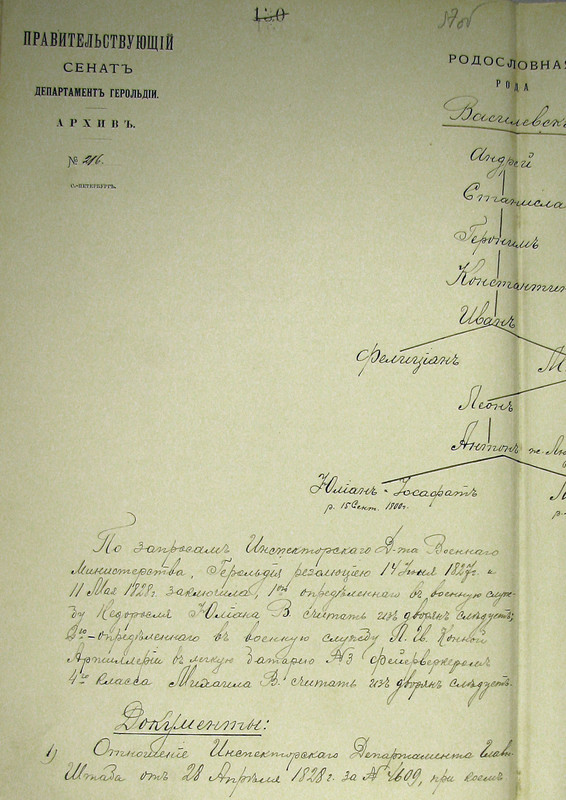 130
37об
ПРАВИТЕЛЬСТВУЮЩІЙ
СЕНАТЪ
ДЕПАРТАМЕНТЪ ГЕРОЛЬДІИ.
АРХИВЪ.
№ 216.
С.-ПЕТЕРБУРГЪ.
РОДОСЛОВНАЯ
РОДА
Василевск
Андрей
Станисла
Геронимъ
Константин
Иванъ
Фелиціанъ
М
Леонъ
Антонъ ж. Лю
Юліанъ-Іосафатъ
р. 15 Сент. 1800 г.
По запросамъ Инспекторскаго Д-та Военнаго
Министерства, Герольдія резолюціею 14 Іюня 1827 г. и
11 Мая 1828 г. заключила, 1ое опредѣленнаго въ военную служ-
бу Недоросля Юліана В. считать изъ дворянъ слѣдуетъ;
2ое - опредѣленнаго въ военную службу Л. Гв. Конной
Артиллеріи въ легкую батарею №3 фейерверкеромъ
4го класса Михаила В. считать изъ дворянъ слѣдуетъ.
Документы:
1) Отношеніе Инспекторскаго Департамента Главн.
Штаба отъ 28 Апрѣля 1828 г. за № 4609, при коемъ